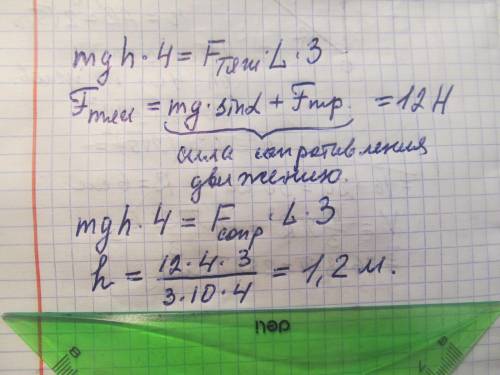 mgh · 4 = Fтяги · L · 3
Fтяги = mg · sinα + Fтр. = 12 Н
сила сопротивления
движению.
mgh · 4 = Fсопр · L · 3
h = 12 · 4 · 3 / 3 · 10 · 4 = 1,2 м.
deli